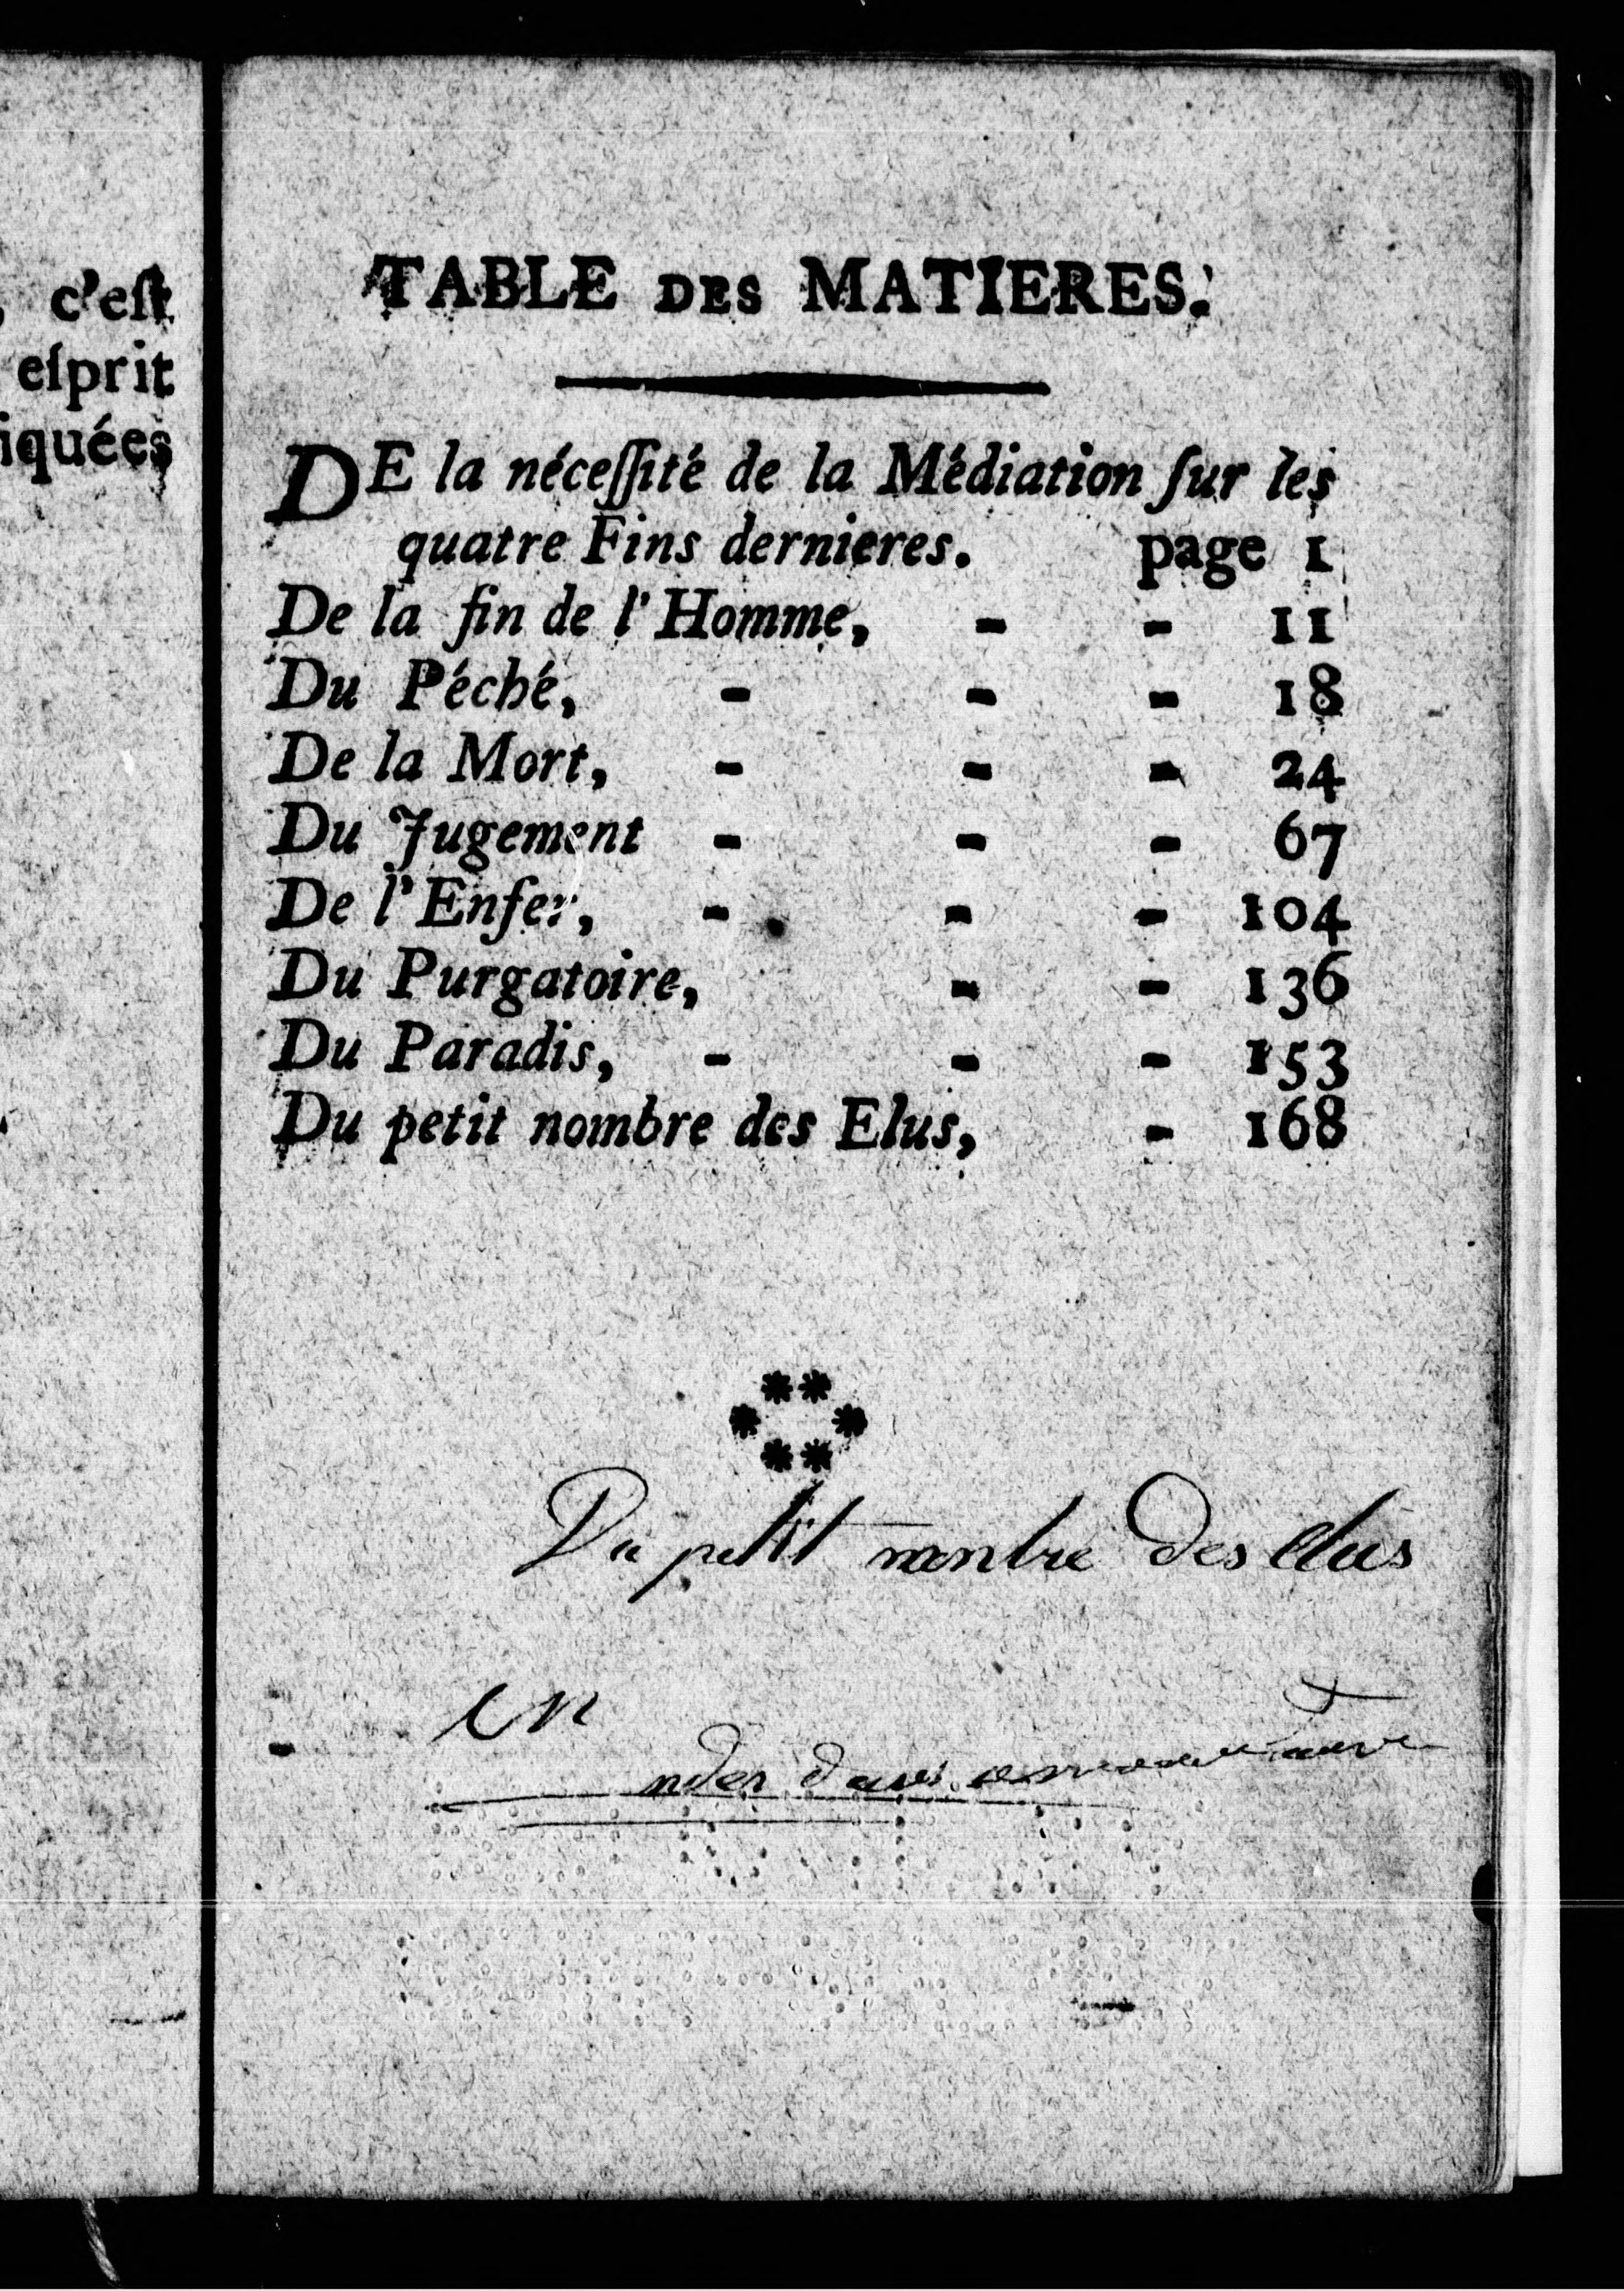 c'eſt
eſprit
iquées
TABLE DES MATIERES.
DE la néceſſité de la Médiation ſur les
quatre Fins dernieres. page 1
De la fin de l'Homme, - - 11
Du Péché, - - - 18
De la Mort, - - - 24
Du Jugement - - - 67
De l'Enfer, - - - 104
Du Purgatoire, - - 136
Du Paradis, - - - 153
Du petit nombre des Elus, - 168
Du petit nombre des elus
en